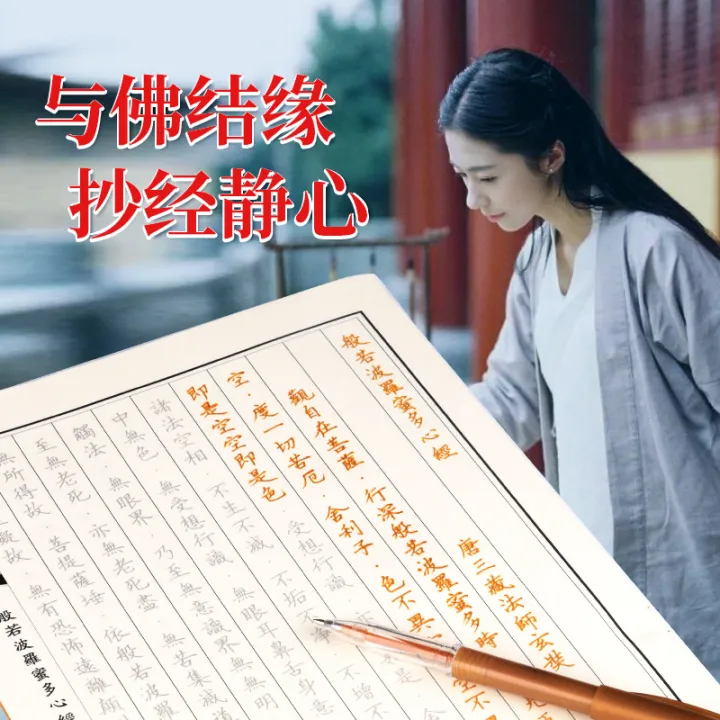 与佛结缘
抄经静心
般若波羅蜜多心經
唐三藏法師玄奘
觀自在菩薩·行深般若波羅蜜多時
空·度一切苦厄·舍利子·色不異
空不
即是空空即是色·受想行識
諸法空相·不生不滅·不垢不
不增不
中無色·無受想行識·無眼耳鼻舌身意
觸法·無眼界·乃至無意識界·無無明
至無老死·亦無老死盡·無苦集滅道
無所得故·菩提薩埵·依般若
故·無有恐怖遠離顛
般若波羅蜜多心經